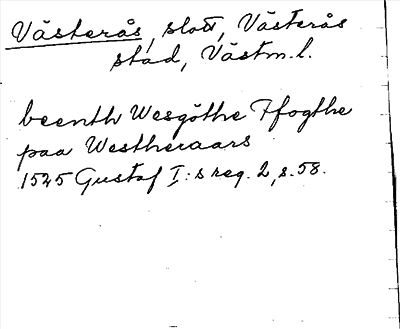 Västerås, slott, Västerås
stad, Västm. l.
beenth Wesgöthe Ffogthe
paa Westheraars
1525 Gustaf I:s reg. 2, s. 58.